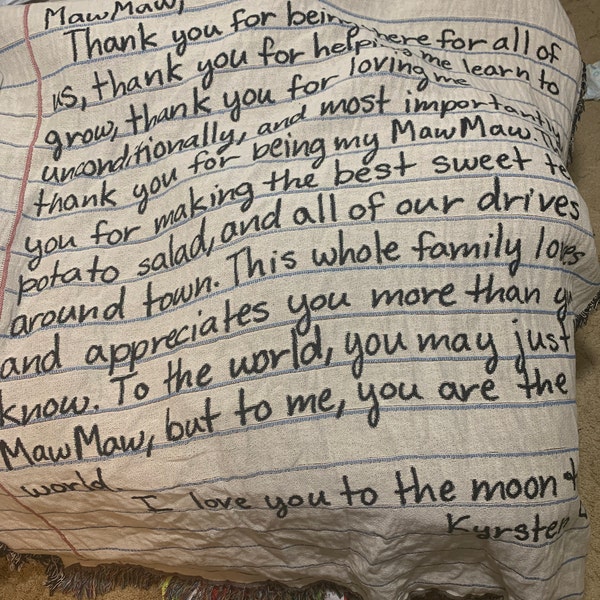 MawMaw,
Thank you for being here for all of
us, thank you for helping me learn to
grow, thank you for loving me
unconditionally, and most importantly
thank you for being my MawMaw.
you for making the best sweet te
potato salad, and all of our drives
around town. This whole family loves
and appreciates you more than y
know. To the world, you may just
MawMaw, but to me, you are the
world
I love you to the moon
Kyrsten